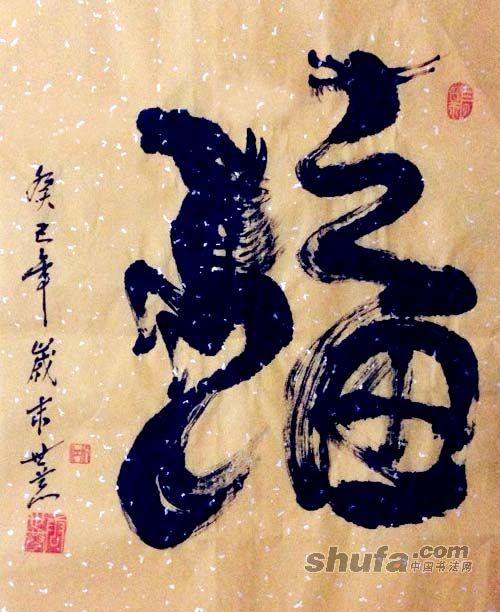 福
癸巳年歲末世[?]
shufa.com
中国书法网